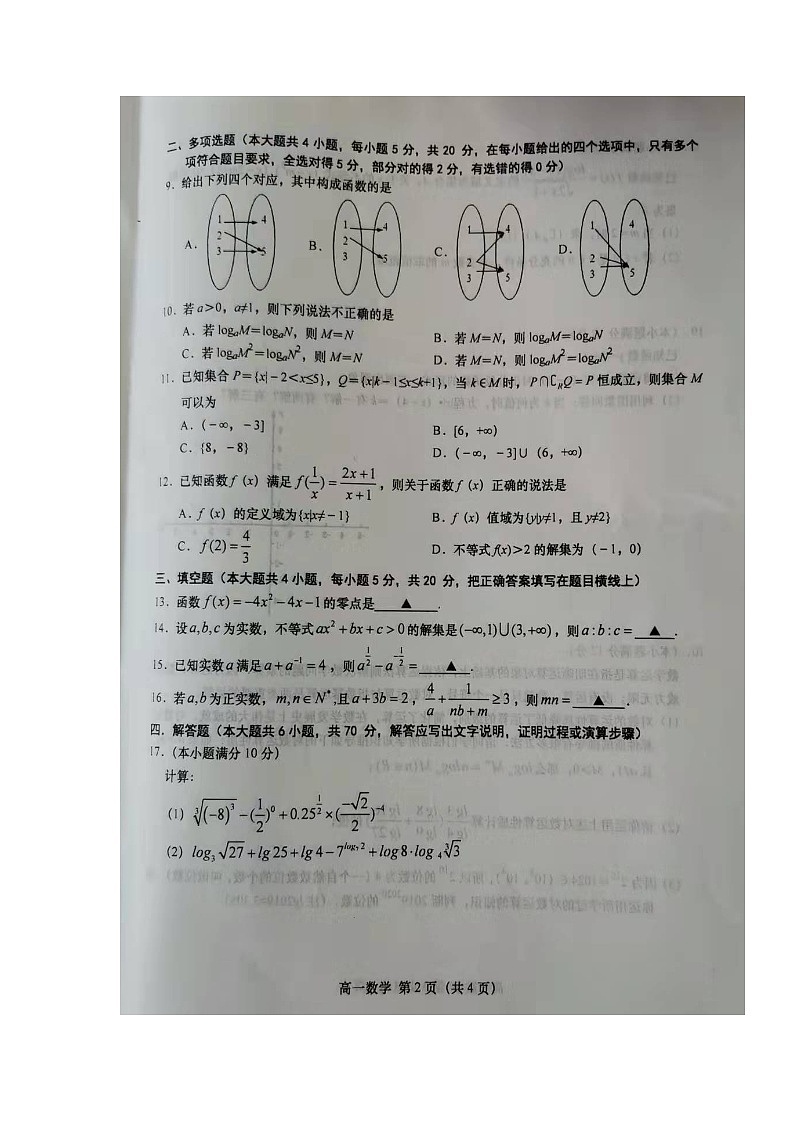 二、多项选题（本大题共 4 小题，每小题 5 分，共 20 分，在每小题给出的四个选项中，只有多个
项符合题目要求，全选对得 5 分，部分对的得 2 分，有选错的得 0 分）
9. 给出下列四个对应，其中构成函数的是
A. 1 2 3 4 5 B. 1 2 3 4 5 C. 1 2 3 4 5 D. 1 2 3 4 5
10. 若 a>0，a≠1，则下列说法不正确的是
A. 若 logₐM=logₐN，则 M=N B. 若 M=N，则 logₐM=logₐN
C. 若 logₐM²=logₐN²，则 M=N D. 若 M=N，则 logₐM²=logₐN²
11. 已知集合 P={x|－2<x≤5}，Q={x|k－1≤x≤k+1}，当 k∈M 时，P∩∁RQ=P 恒成立，则集合 M
可以为
A. (－∞，－3] B. [6，+∞)
C. {8，－8} D. (－∞，－3]∪（6，+∞)
12. 已知函数 f（x）满足 f(1/x)=(2x+1)/(x+1)，则关于函数 f（x）正确的说法是
A. f（x）的定义域为{x|x≠－1} B. f（x）值域为{y|y≠1，且 y≠2}
C. f(2)=4/3 D. 不等式 f(x)>2 的解集为（－1，0）
三、填空题（本大题共 4 小题，每小题 5 分，共 20 分，把正确答案填写在题目横线上）
13. 函数 f(x)=-4x²-4x-1 的零点是 ▲ .
14. 设 a,b,c 为实数，不等式 ax²+bx+c>0 的解集是 (-∞,1)∪(3,+∞)，则 a:b:c= ▲ .
15. 已知实数 a 满足 a+a⁻¹=4，则 a^(1/2)-a^(-1/2)= ▲ .
16. 若 a,b 为正实数，m,n∈N*,且 a+3b=2，4/a+1/(nb+m)≥3，则 mn= ▲ .
四、解答题（本大题共 6 小题，共 70 分，解答应写出文字说明，证明过程或演算步骤）
17.（本小题满分 10 分）
计算：
(1) ∛(-8)³-(1/2)⁰+0.25^(1/2)×(-√2/2)⁻⁴
(2) log₃√27+lg25+lg4-7^(log₇2)+log8·log₄∛3
高一数学 第 2 页（共 4 页）